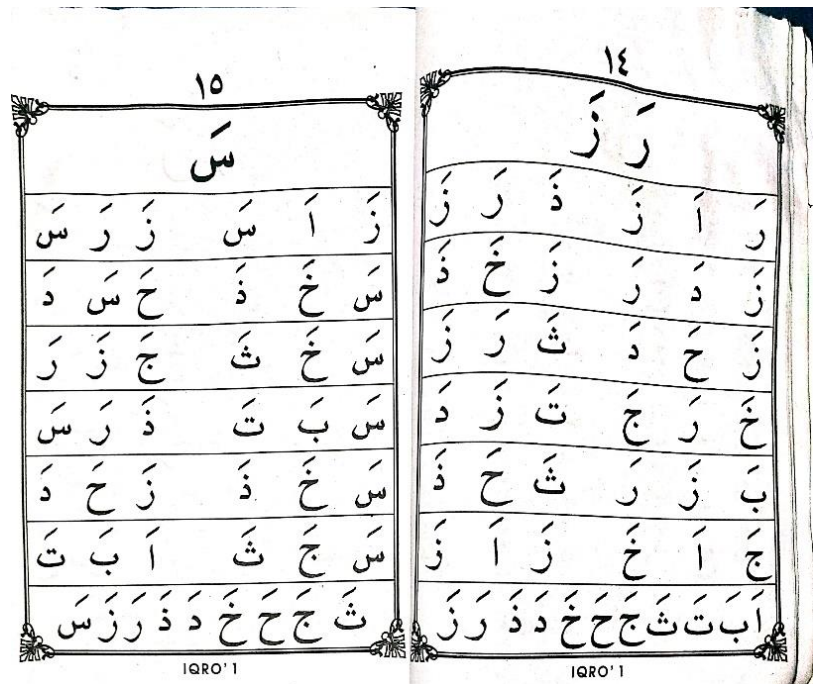 ١٤
رَ زَ
رَ اَ زَ ذَ رَ زَ
زَ دَ رَ زَ خَ ذَ
زَ حَ دَ ثَ رَ زَ
خَ رَ جَ تَ زَ دَ
بَ زَ رَ ثَ حَ ذَ
جَ اَ خَ زَ اَ زَ
اَ بَ تَ ثَ جَ حَ خَ دَ ذَ رَ زَ
IQRO' 1
١٥
سَ
زَ اَ سَ زَ رَ سَ
سَ خَ ذَ حَ سَ دَ
سَ خَ ثَ جَ زَ رَ
سَ بَ تَ ذَ رَ سَ
سَ خَ ذَ زَ حَ دَ
سَ جَ ثَ اَ بَ تَ
ثَ جَ حَ خَ دَ ذَ رَ زَ سَ
IQRO' 1